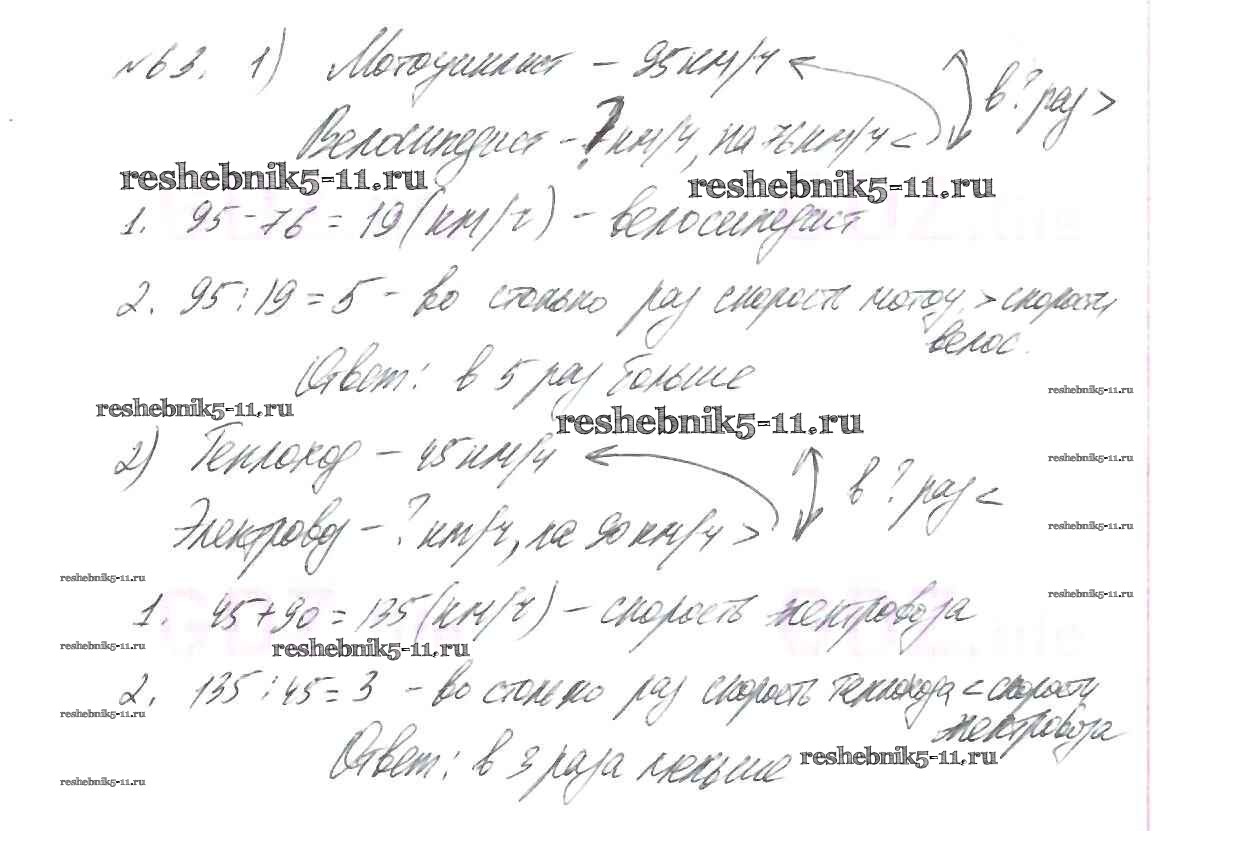 №63. 1) Мотоциклист – 95 км/ч
в ? раз >
Велосипедист – ? км/ч, на 76 км/ч <
reshebnik5-11.ru
reshebnik5-11.ru
1. 95 – 76 = 19 (км/ч) – велосипедист
2. 95 : 19 = 5 – во столько раз скорость мотоц. > скорости
велос.
Ответ: в 5 раз больше
reshebnik5-11.ru
reshebnik5-11.ru
reshebnik5-11.ru
2) Теплоход – 45 км/ч
reshebnik5-11.ru
в ? раз <
Электровоз – ? км/ч, на 90 км/ч >
reshebnik5-11.ru
reshebnik5-11.ru
1. 45 + 90 = 135 (км/ч) – скорость электровоза
reshebnik5-11.ru
reshebnik5-11.ru
reshebnik5-11.ru
2. 135 : 45 = 3 – во столько раз скорость теплохода < скорости
reshebnik5-11.ru
электровоза
Ответ: в 3 раза меньше
reshebnik5-11.ru
reshebnik5-11.ru